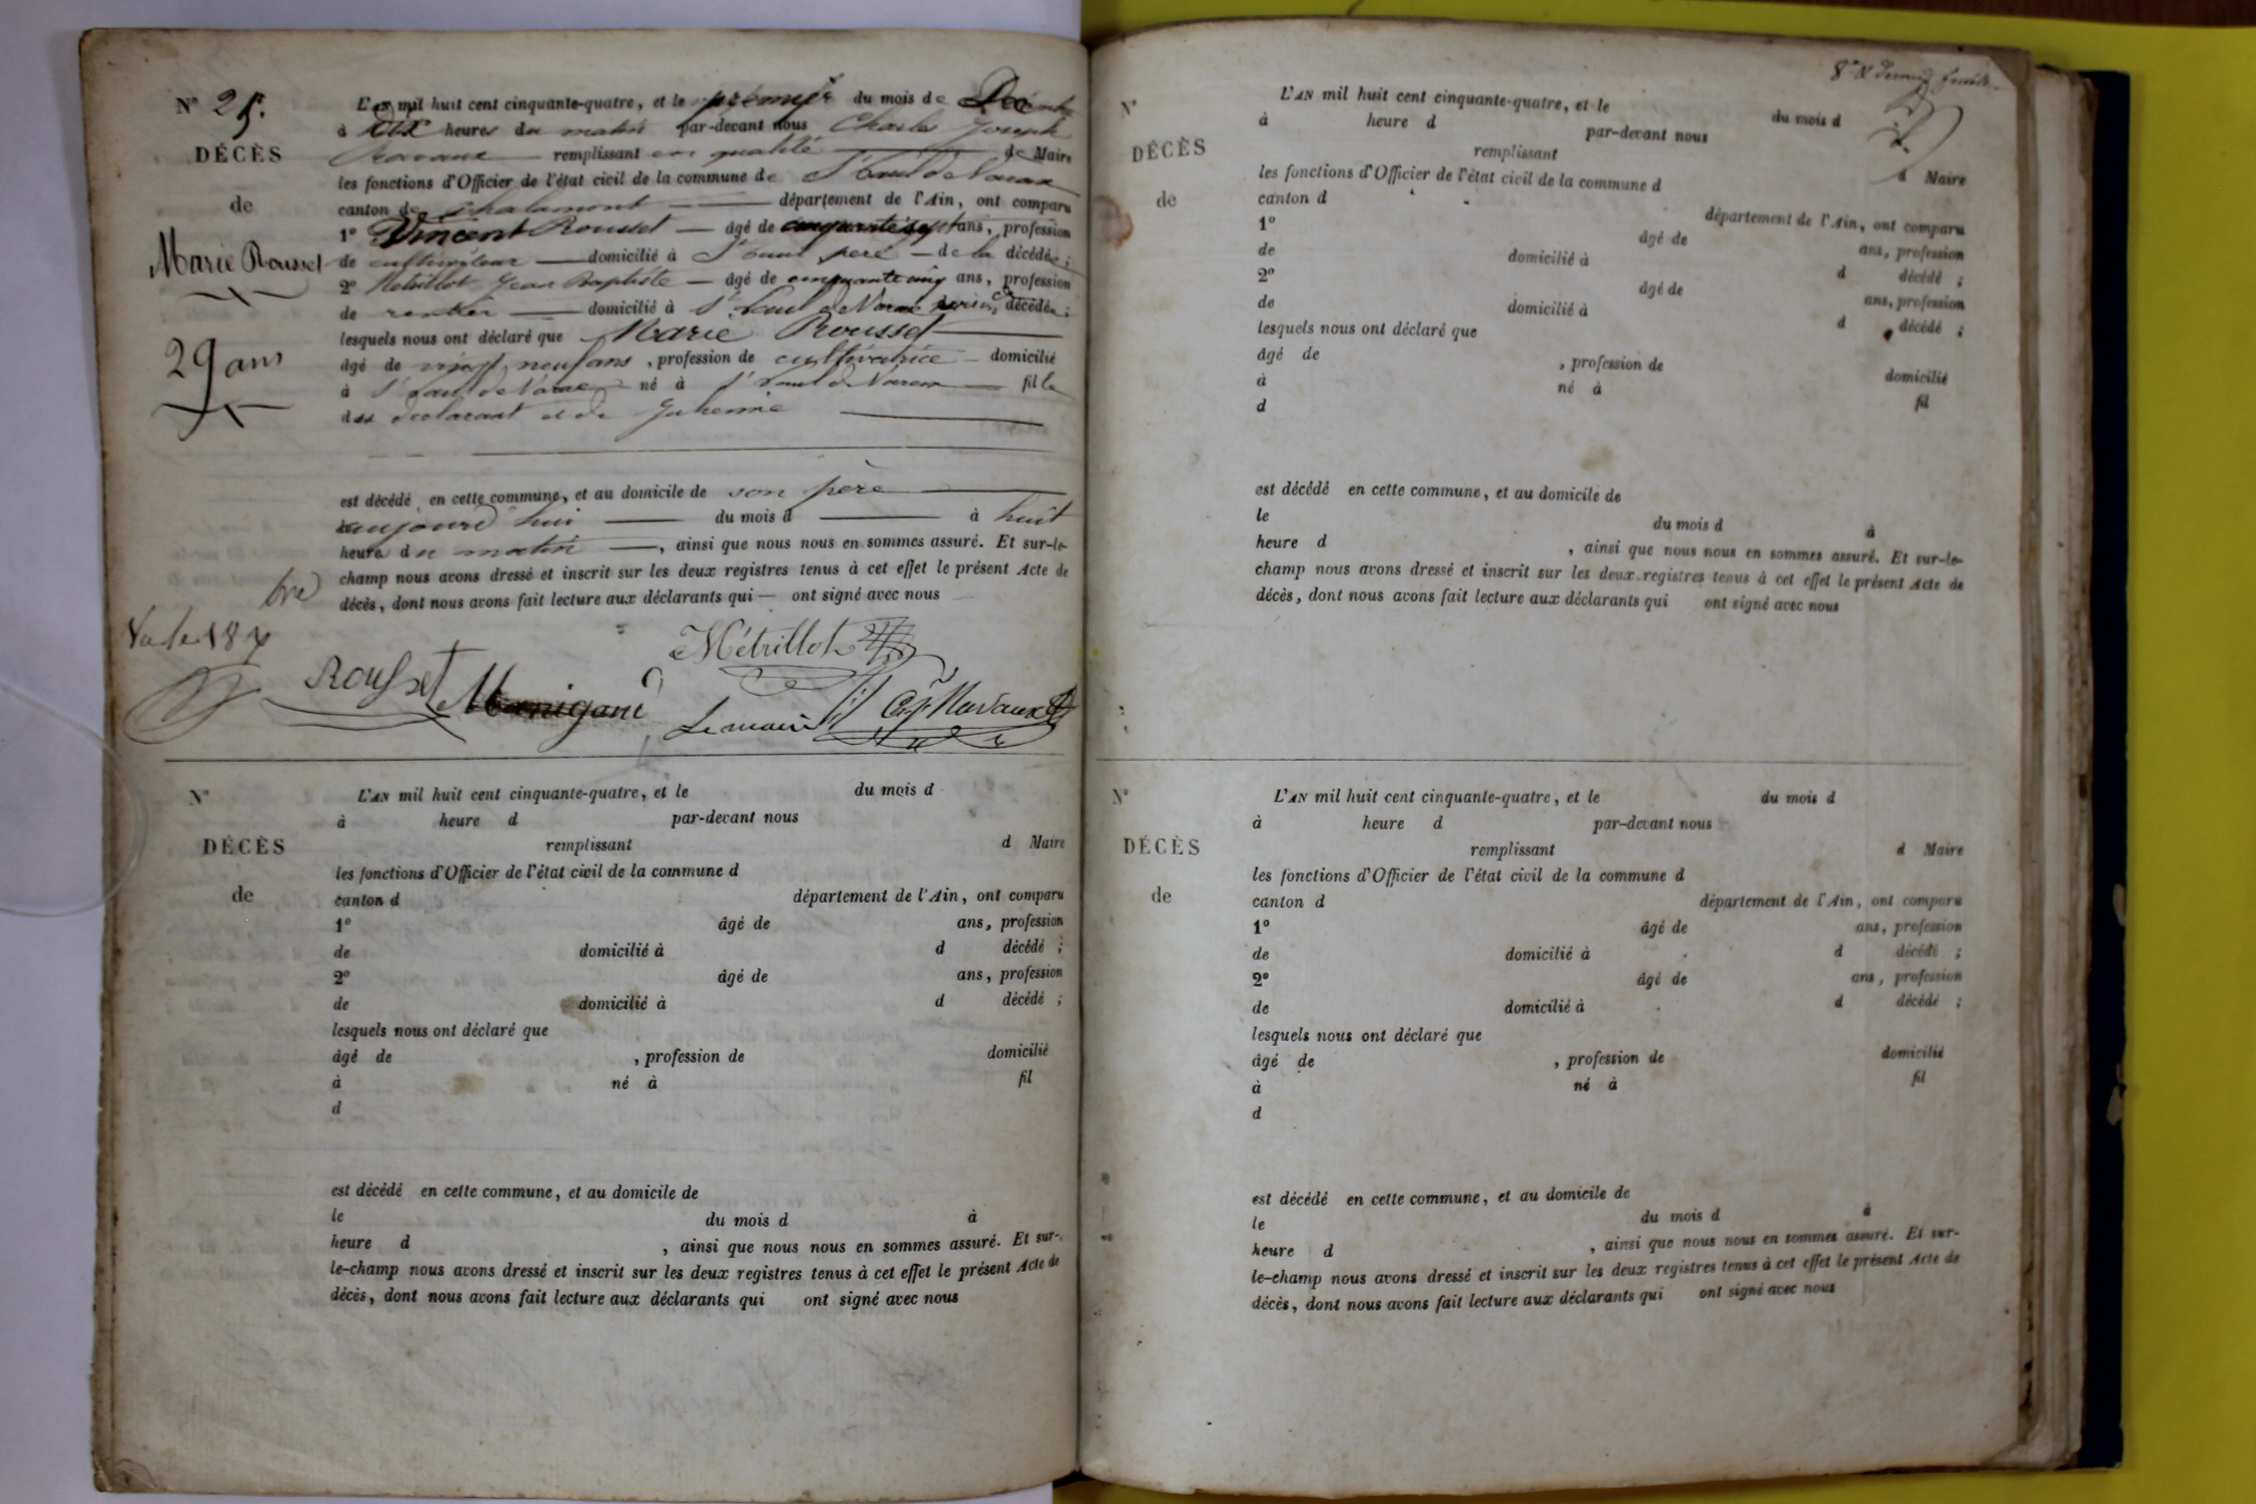 N° 25.
DÉCÈS
de
Marie Rousset
29 ans
L'AN mil huit cent cinquante-quatre, et le premier du mois de Décembre
à dix heures du matin par-devant nous Charles Joseph
remplissant en qualité de Maire
les fonctions d'Officier de l'état civil de la commune de St Paul de Varax
canton de Chalamont département de l'Ain, ont comparu
1° Vincent Rousset âgé de cinquante sept ans, profession
de cultivateur domicilié à St Paul père de la décédée ;
2° Métrillot Jean Baptiste âgé de cinquante cinq ans, profession
de rentier domicilié à St Paul de Varax voisin décédée ;
lesquels nous ont déclaré que Marie Rousset
âgé de vingt neuf ans, profession de cultivatrice domicilié
à St Paul de Varax né à St Paul de Varax fille
du déclarant et de
est décédé en cette commune, et au domicile de son père
aujourd'hui du mois d à huit
heure du matin, ainsi que nous nous en sommes assuré. Et sur-le-
champ nous avons dressé et inscrit sur les deux registres tenus à cet effet le présent Acte de
décès, dont nous avons fait lecture aux déclarants qui — ont signé avec nous
Métrillot
Rousset
Le maire
N°
DÉCÈS
de
L'AN mil huit cent cinquante-quatre, et le du mois d
à heure d par-devant nous
remplissant d Maire
les fonctions d'Officier de l'état civil de la commune d
canton d département de l'Ain, ont comparu
1° âgé de ans, profession
de domicilié à d décédé ;
2° âgé de ans, profession
de domicilié à d décédé ;
lesquels nous ont déclaré que
âgé de , profession de domicilié
à né à fil
d
est décédé en cette commune, et au domicile de
le du mois d à
heure d , ainsi que nous nous en sommes assuré. Et sur-
le-champ nous avons dressé et inscrit sur les deux registres tenus à cet effet le présent Acte de
décès, dont nous avons fait lecture aux déclarants qui ont signé avec nous
N°
DÉCÈS
de
L'AN mil huit cent cinquante-quatre, et le du mois d
à heure d par-devant nous
remplissant d Maire
les fonctions d'Officier de l'état civil de la commune d
canton d département de l'Ain, ont comparu
1° âgé de ans, profession
de domicilié à d décédé ;
2° âgé de ans, profession
de domicilié à d décédé ;
lesquels nous ont déclaré que
âgé de , profession de domicilié
à né à fil
d
est décédé en cette commune, et au domicile de
le du mois d à
heure d , ainsi que nous nous en sommes assuré. Et sur-le-
champ nous avons dressé et inscrit sur les deux registres tenus à cet effet le présent Acte de
décès, dont nous avons fait lecture aux déclarants qui ont signé avec nous
N°
DÉCÈS
de
L'AN mil huit cent cinquante-quatre, et le du mois d
à heure d par-devant nous
remplissant d Maire
les fonctions d'Officier de l'état civil de la commune d
canton d département de l'Ain, ont comparu
1° âgé de ans, profession
de domicilié à d décédé ;
2° âgé de ans, profession
de domicilié à d décédé ;
lesquels nous ont déclaré que
âgé de , profession de domicilié
à né à fil
d
est décédé en cette commune, et au domicile de
le du mois d à
heure d , ainsi que nous nous en sommes assuré. Et sur-
le-champ nous avons dressé et inscrit sur les deux registres tenus à cet effet le présent Acte de
décès, dont nous avons fait lecture aux déclarants qui ont signé avec nous